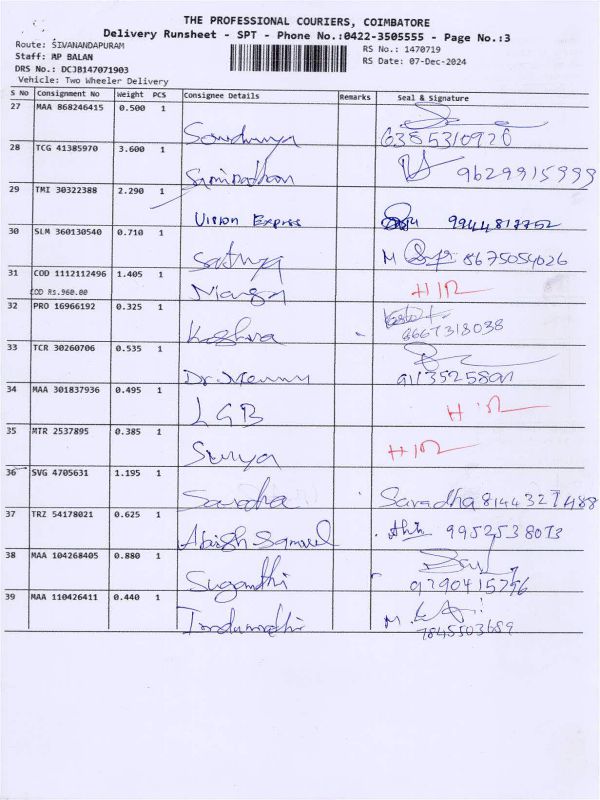 THE PROFESSIONAL COURIERS, COIMBATORE
Delivery Runsheet - SPT - Phone No.:0422-3505555 - Page No.:3
Route: SIVANANDAPURAM
Staff: RP BALAN
DRS No.: DCJB147071903
Vehicle: Two Wheeler Delivery
RS No.: 1470719
RS Date: 07-Dec-2024
S No Consignment No Weight PCS Consignee Details Remarks Seal & Signature
27 MAA 868246415 0.500 1 6385310920
28 TCG 41385970 3.600 1 9629915999
29 TMI 30322388 2.290 1 Vision Express 9944817752
30 SLM 360130540 0.710 1 Sathya M 8675054026
31 COD 1112112496 1.405 1
COD Rs.960.00
32 PRO 16966192 0.325 1 8667318038
33 TCR 30260706 0.535 1
34 MAA 301837936 0.495 1 LGB
35 MTR 2537895 0.385 1 Surya
36 SVG 4705631 1.195 1 Saradha Saradha 8144327488
37 TRZ 54178021 0.625 1 Abish Samuel 9952538073
38 MAA 104268405 0.880 1 Suganthi
39 MAA 110426411 0.440 1 Indumathi M. 7845503689